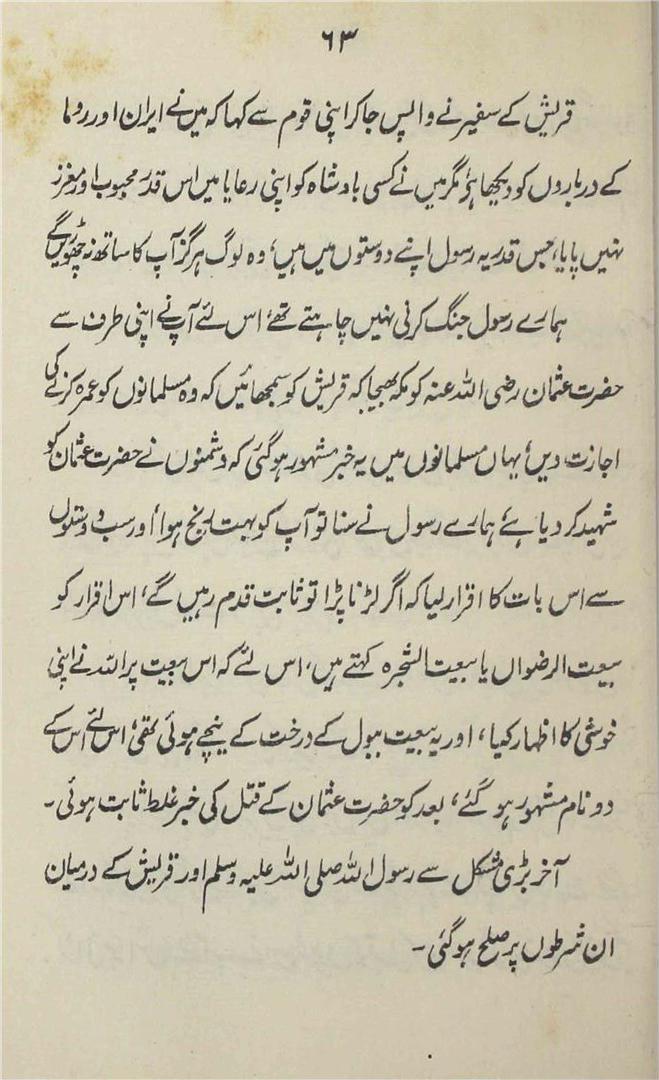 ۶۳
قریش کے سفیر نے واپس جا کر اپنی قوم سے کہا کہ میں نے ایران اور روما
کے درباروں کو دیکھا ہے، مگر میں نے کسی بادشاہ کو اپنی رعایا میں اس قدر محبوب اور معزز
نہیں پایا، جس قدر یہ رسول اپنے دوستوں میں ہیں، وہ لوگ ہرگز آپ کا ساتھ نہ چھوڑیں گے
ہمارے رسول جنگ کرنی نہیں چاہتے تھے، اس لئے آپ نے اپنی طرف سے
حضرت عثمان رضی اللہ عنہ کو مکہ بھیجا کہ قریش کو سمجھائیں کہ وہ مسلمانوں کو عمرہ کرنے کی
اجازت دیں، یہاں مسلمانوں میں یہ خبر مشہور ہو گئی کہ دشمنوں نے حضرت عثمان کو
شہید کر دیا ہے، ہمارے رسول نے سنا تو آپ کو بہت رنج ہوا، اور سب دوستوں
سے اس بات کا اقرار لیا کہ اگر لڑنا پڑا تو ثابت قدم رہیں گے، اس اقرار کو
بیعت الرضواں یا بیعت الشجرہ کہتے ہیں، اس لئے کہ اس بیعت پر اللہ نے اپنی
خوشی کا اظہار کیا، اور یہ بیعت ببول کے درخت کے نیچے ہوئی تھی، اس لئے اس کے
دو نام مشہور ہو گئے، بعد کو حضرت عثمان کے قتل کی خبر غلط ثابت ہوئی۔
آخر بڑی مشکل سے رسول اللہ صلی اللہ علیہ وسلم اور قریش کے درمیان
ان شرطوں پر صلح ہو گئی۔